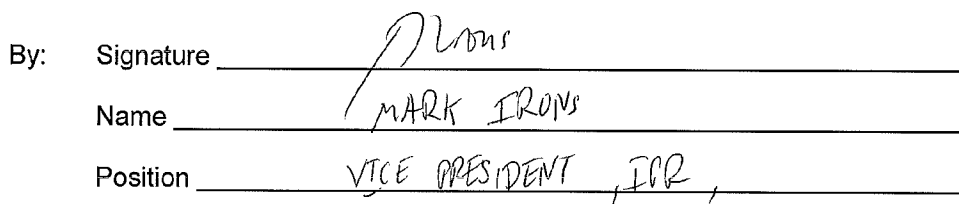 By: Signature
Name MARK IRONS
Position VICE PRESIDENT, IPR,